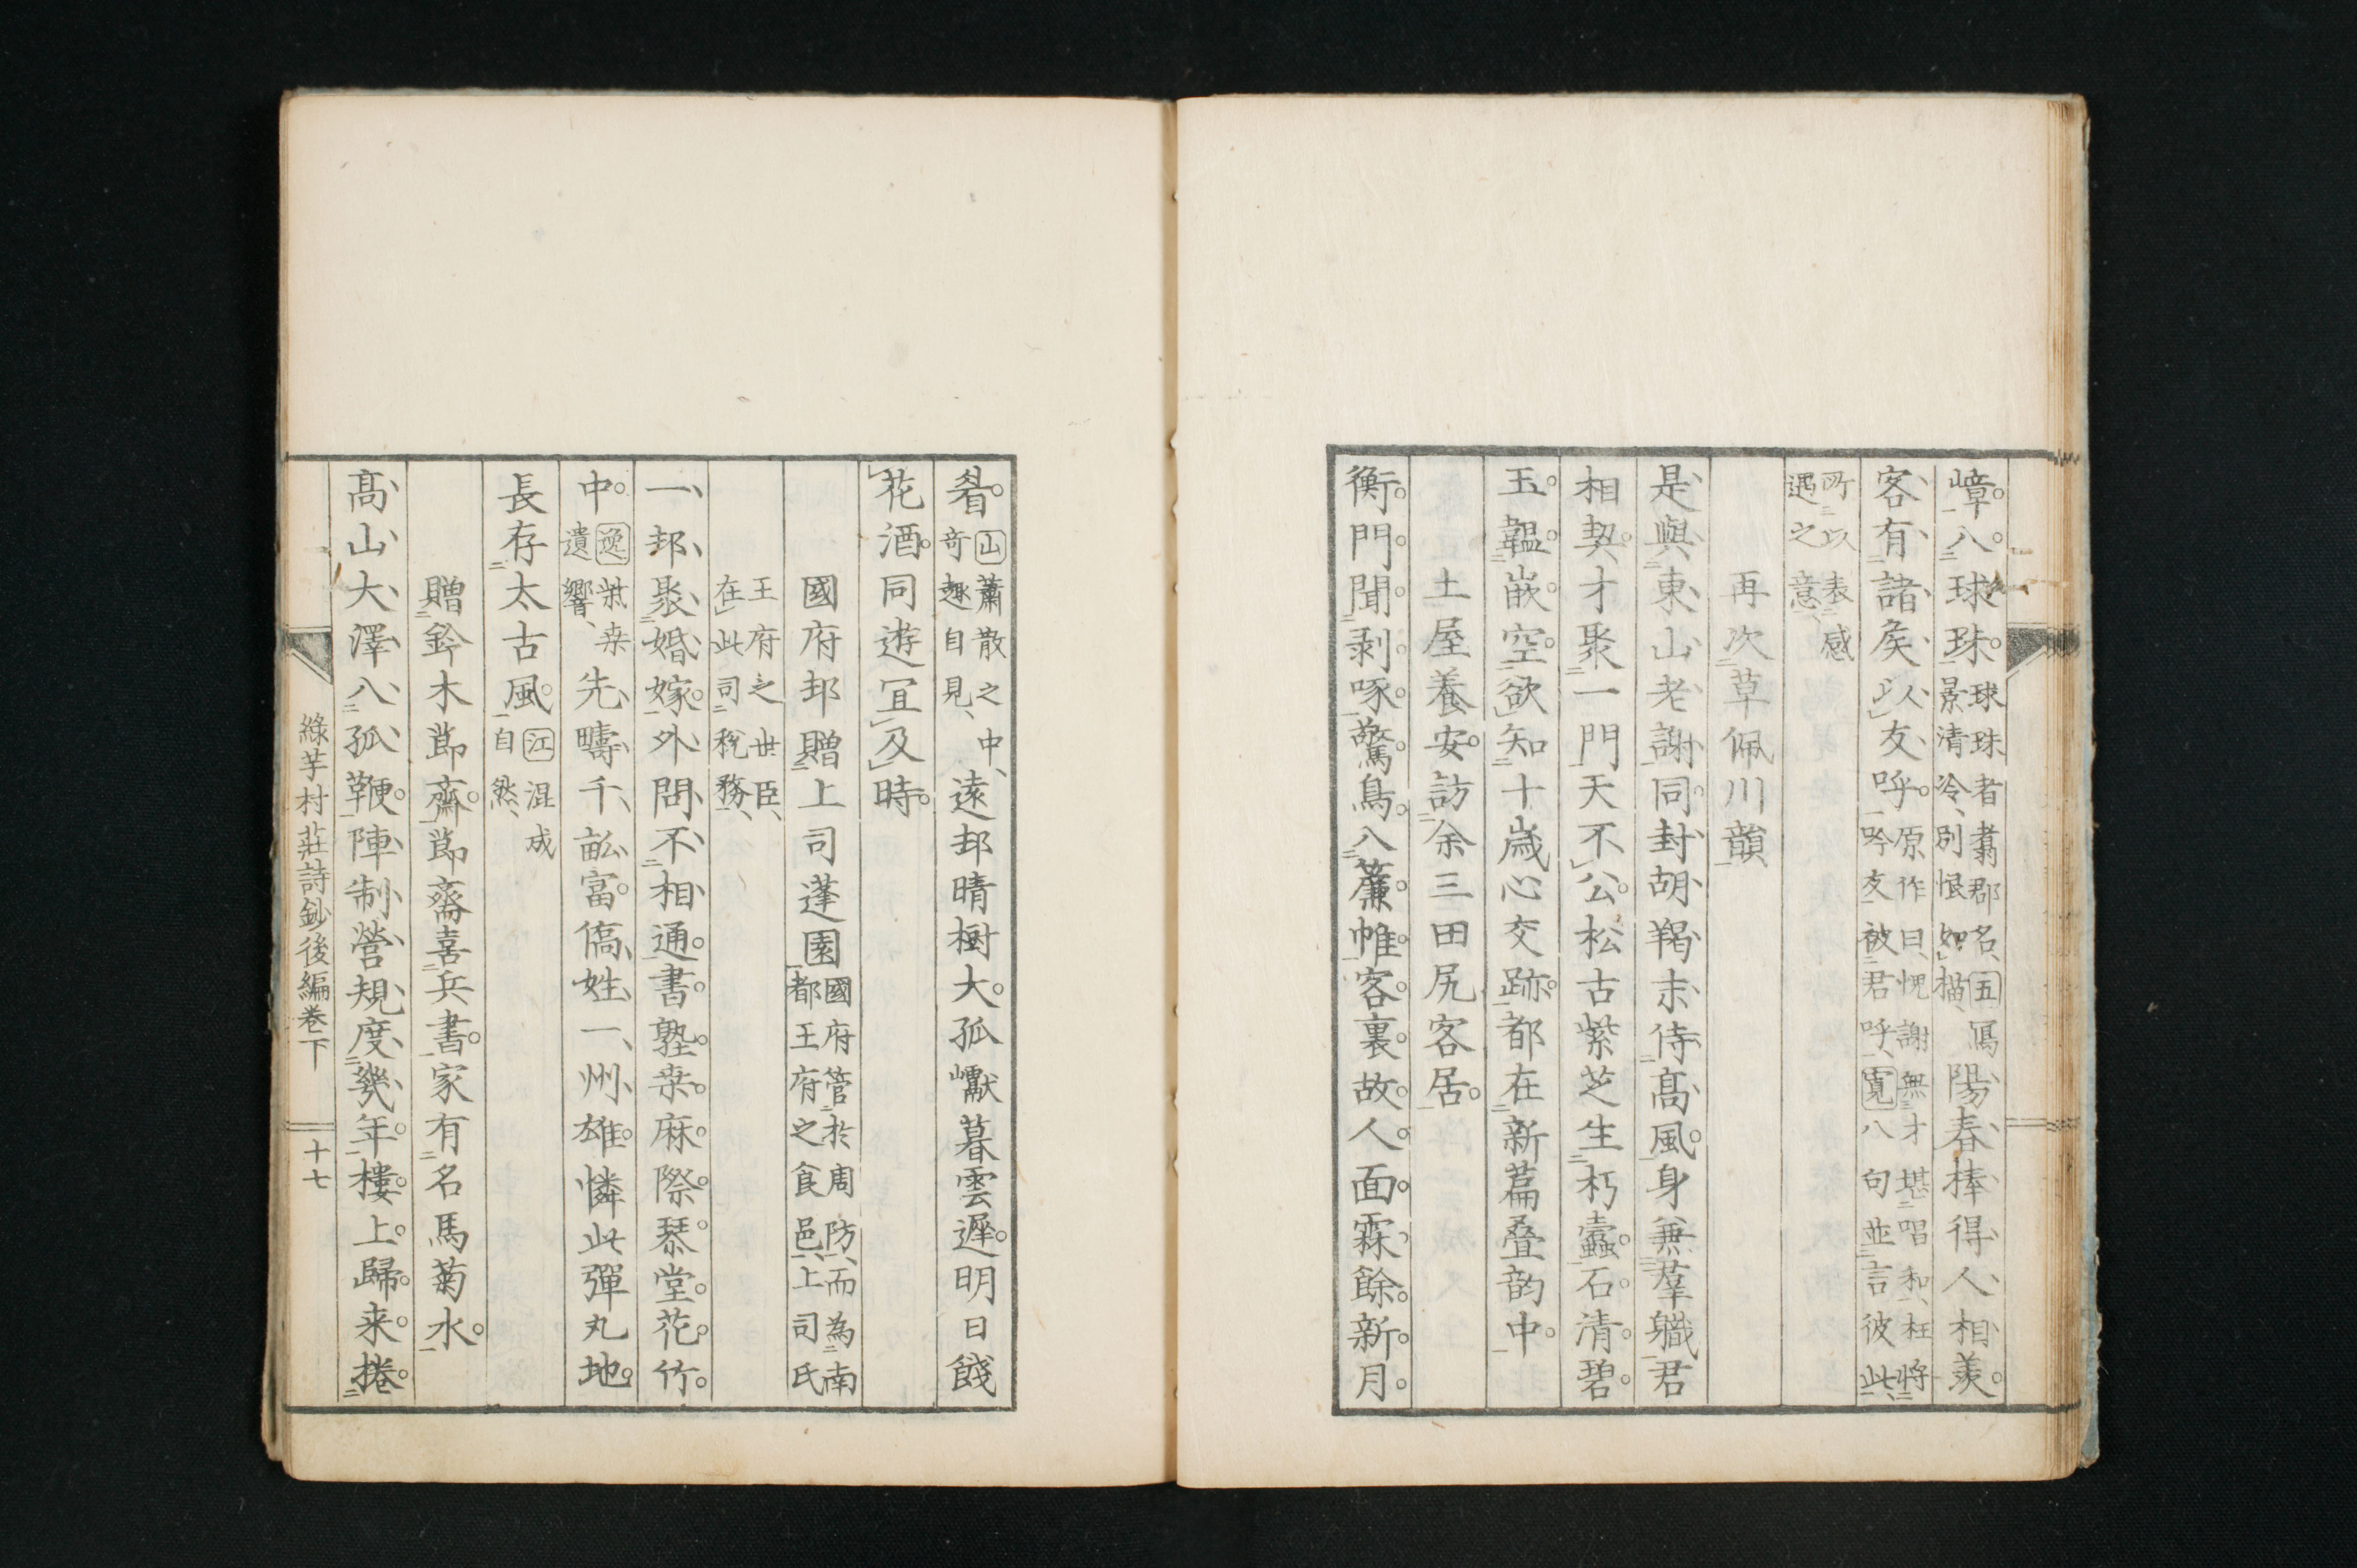 嶂八球珠球珠者豊郡名五寫景清冷別恨如描陽春捧得人相羨
客有諸矦以友呼原作曰愧謝無才堪唱和枉將吟友被君呼寛八句並言彼此
所以表感遇之意
再次草佩川韻
是輿東山老謝同封胡羯末侍髙風身兼羣職君
相契才聚一門天不公松古紫芝生朽蠹石清碧
玉韞嵌空欲知十歳心交跡都在新篇叠韵中
土屋養安訪余三田尻客居
衡門聞剥啄驚鳥入簾帷客裏故人面霖餘新月
眉山蕭散之中奇趣自見遠邨晴樹大孤巘暮雲遲明日餞
花酒同遊冝及時
國府邨贈上司蓬園國府管於周防而為南都王府之食邑上司氏
王府之世臣在此司税務
一邨聚婚嫁外問不相通書塾桒麻際琴堂花竹
中逸桒遺響先疇千畝富僑姓一州雄憐此彈丸地
長存太古風江混成自然
贈鈴木節齋節齋喜兵書家有名馬菊水
髙山大澤入孤鞭陣制營規度幾年樓上歸来捲
綠芋村莊詩鈔後編卷下 十七